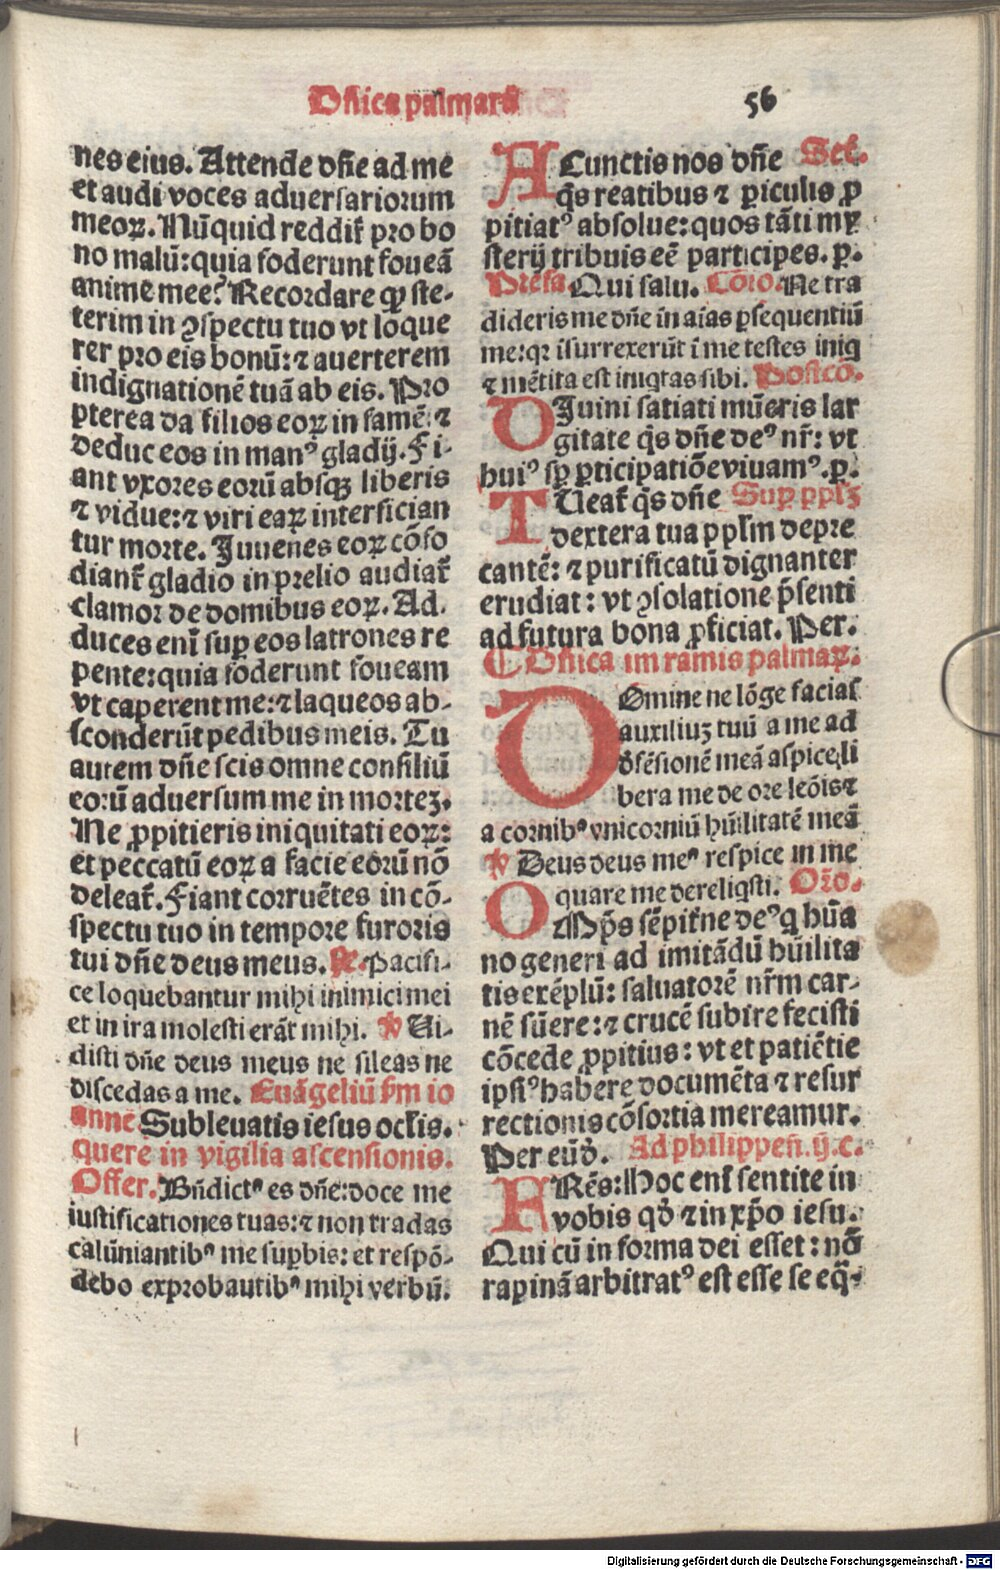 Dñica palmarū 56
nes eius. Attende dñe ad me
et audi voces aduersariorum
meoꝝ. Nūquid reddit̄ pro bo
no malū: quia foderunt foueā
anime mee? Recordare ꝙ ste-
terim in ꝯspectu tuo vt loque
rer pro eis bonū: ⁊ auerterem
indignationē tuā ab eis. Pro
pterea da filios eoꝝ in famē: ⁊
deduc eos in manꝰ gladij. Fi-
ant vxores eorū absqꝫ liberis
⁊ vidue: ⁊ viri eaꝝ interfician
tur morte. Iuuenes eoꝝ cōfo
diant̄ gladio in prelio audiat̄
clamor de domibus eoꝝ. Ad.
duces eni̅ suꝑ eos latrones re
pente: quia foderunt foueam
vt caperent me: ⁊ laqueos ab-
sconderūt pedibus meis. Tu
autem dñe scis omne consiliū
eorū aduersum me in morteꝫ.
Ne ꝓpitieris iniquitati eoꝝ:
et peccatū eoꝝ a facie eorū nō
deleat̄. Fiant corruētes in cō-
spectu tuo in tempore furoris
tui dñe deus meus. ℟. Pacifi-
ce loquebantur mihi inimici mei
et in ira molesti erāt mihi. ℣ Ui-
disti dñe deus meus ne sileas ne
discedas a me. Euāgeliū ẜm io
anne Subleuatis iesus oclis.
quere in vigilia ascensionis.
Offer. Bn̄dictꝰ es dñe: doce me
iustificationes tuas: ⁊ non tradas
calūniantibꝰ me suꝑbis: et respō-
debo exprobautibꝰ mihi verbū.
A Cunctis nos dñe Sec̄.
q̄s reatibus ⁊ ꝑiculis ꝓ
pitiatꝰ absolue: quos tāti my
sterij tribuis eē participes. ꝑ.
Prefa Qui salu. Cōio. Ne tra
dideris me dñe in aīas ꝑsequentiū
me: qꝛ īsurrexerūt ī me testes iniq
⁊ mētita est iniqtas sibi. Postcō.
DIuini satiati mūeris lar
gitate q̄s dñe deꝰ nr̄: vt
huiꝰ sꝑ ꝑticipatiōe viuamꝰ. ꝑ.
TUeat̄ q̄s dñe Suꝑ pplꝫ
dextera tua ppl̄m depre
cantē: ⁊ purificatū dignanter
erudiat: vt ꝯsolatione p̄senti
ad futura bona ꝓficiat. Per.
¶ Dñica im ramis palmaꝝ.
DOmine ne lōge facias
auxiliuꝫ tuū a me ad
defēsionē meā aspice, li
bera me de ore leōis ⁊
a cornibꝰ vnicorniū hūilitatē meā
℣ Deus deus meꝰ respice in me
quare me dereliqsti. Orō.
OMp̄s sēpit̄ne deꝰ q hūa
no generi ad imitādū hūilita
tis exēplū: saluatorē nr̄m car-
nē sūere: ⁊ crucē subire fecisti
cōcede ꝓpitius: vt et patiētie
ipsiꝰ habere documēta ⁊ resur
rectionis cōsortia mereamur.
Per eūd̄. Ad philippen̄. ij. c.
FRēs: Hoc eni̅ sentite in
vobis qd̄ ⁊ in xp̄o iesu.
Qui cū in forma dei esset: nō
rapinā arbitratꝰ est esse se eq̄-
Digitalisierung gefördert durch die Deutsche Forschungsgemeinschaft - DFG